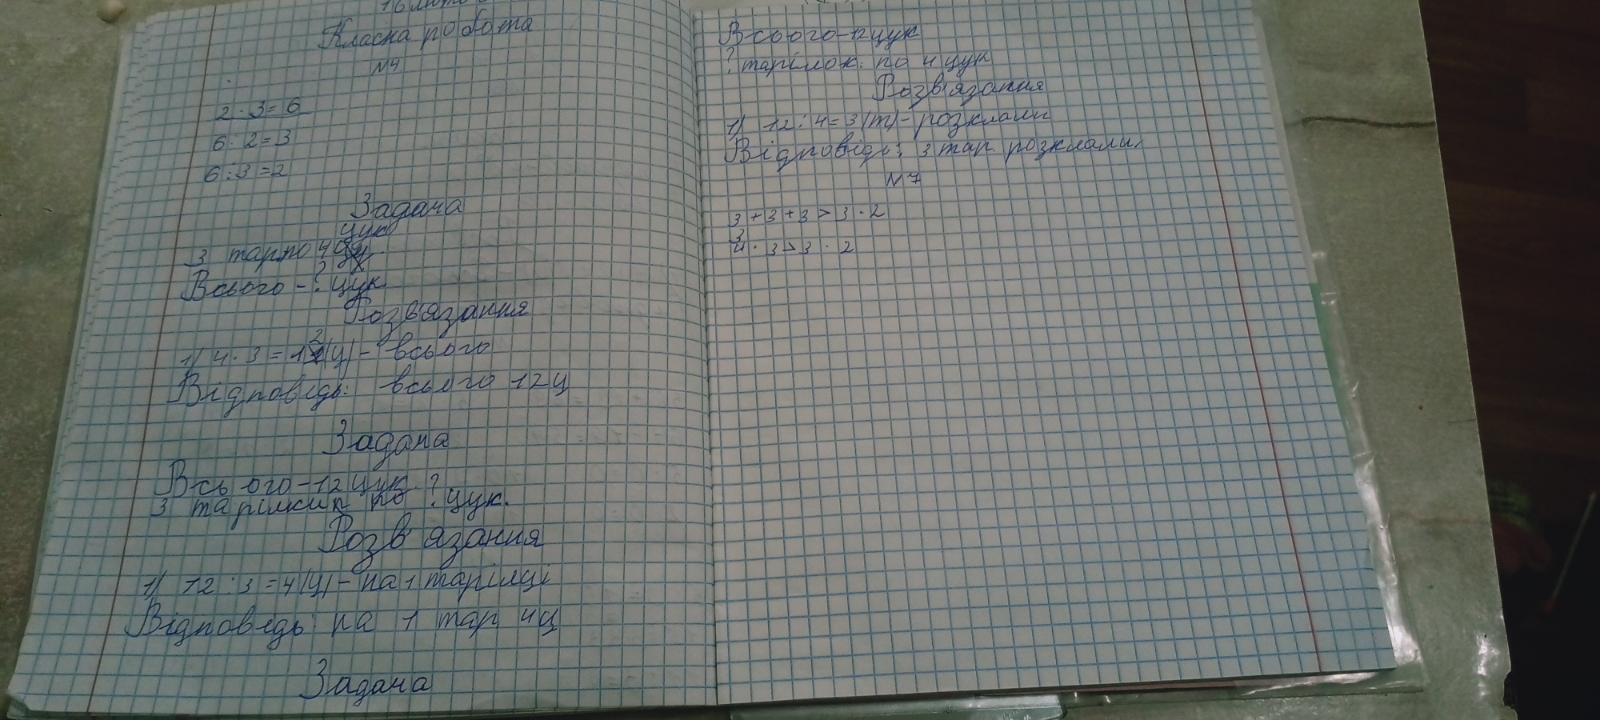 16 лютого
Класна робота
№4
2 · 3 = 6
6 : 2 = 3
6 : 3 = 2
Задача
цук
3 тар по 4
Всього - ? цук
Розв'язання
1) 4 · 3 = 12 (ц) - всього
Відповідь: всього 12 ц
Задача
Всього - 12 цук
3 тарілки по ? цук.
Розв'язання
1) 12 : 3 = 4 (ц) - на 1 тарілці
Відповідь: на 1 тар 4ц
Задача
Всього - 12 цук
? тарілок: по 4 цук
Розв'язання
1) 12 : 4 = 3 (т) - розклали
Відповідь: 3 тар розклали.
№7
3 + 3 + 3 > 3 · 2
3
4 · 3 > 3 · 2